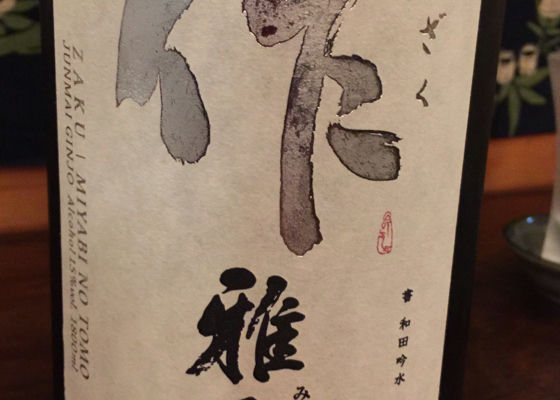 作
ざく
雅
み
書 和田吟水
ZAKU | MIYABI NO TOMO
JUNMAI GINJO Alcohol 15%vol. 1800ml